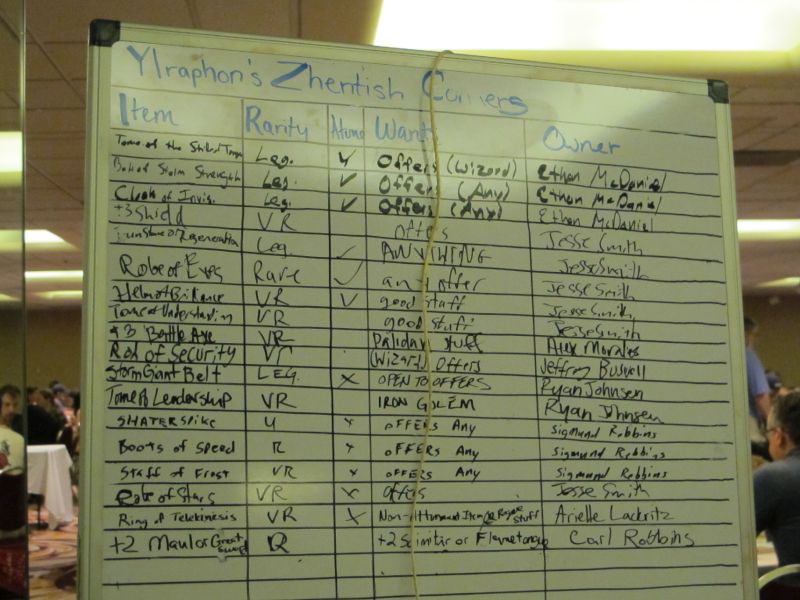 Ylraphon's Zhentish Corners
Item Rarity Atune Want Owner
Tome of the Stilled Tongue Leg. ✓ Offers (Wizard) Ethan McDaniel
Belt of Storm Strength Leg. ✓ Offers (Any) Ethan McDaniel
Cloak of Invis. Leg. ✓ Offers (Any) Ethan McDaniel
+3 Shield VR offers Ethan McDaniel
Regeneration Leg. ✓ ANYTHING Jesse Smith
Robe of Eyes Rare ✓ any offer Jesse Smith
Helm of Brilliance VR ✓ good stuff Jesse Smith
Tome of Understanding VR good stuff Jesse Smith
+3 Battle Axe VR Paliday stuff Alex Morales
Rod of Security VR (Wizard) Offers Jeffrey Buswell
Storm Giant Belt LEG. X OPEN TO OFFERS Ryan Johnsen
Tome of Leadership VR IRON GOLEM Ryan Johnsen
SHATERSPIKE U x OFFERS Any Sigmund Robbins
Boots of Speed R x OFFERS Any Sigmund Robbins
Staff of Frost VR x OFFERS Any Sigmund Robbins
Robe of Stars VR X Offers Jesse Smith
Ring of Telekinesis VR X Non-Attunement Item, Rogue stuff Arielle Lackritz
+2 Maul or Great sword R +2 Scimitar or Flametongue Carl Robbins